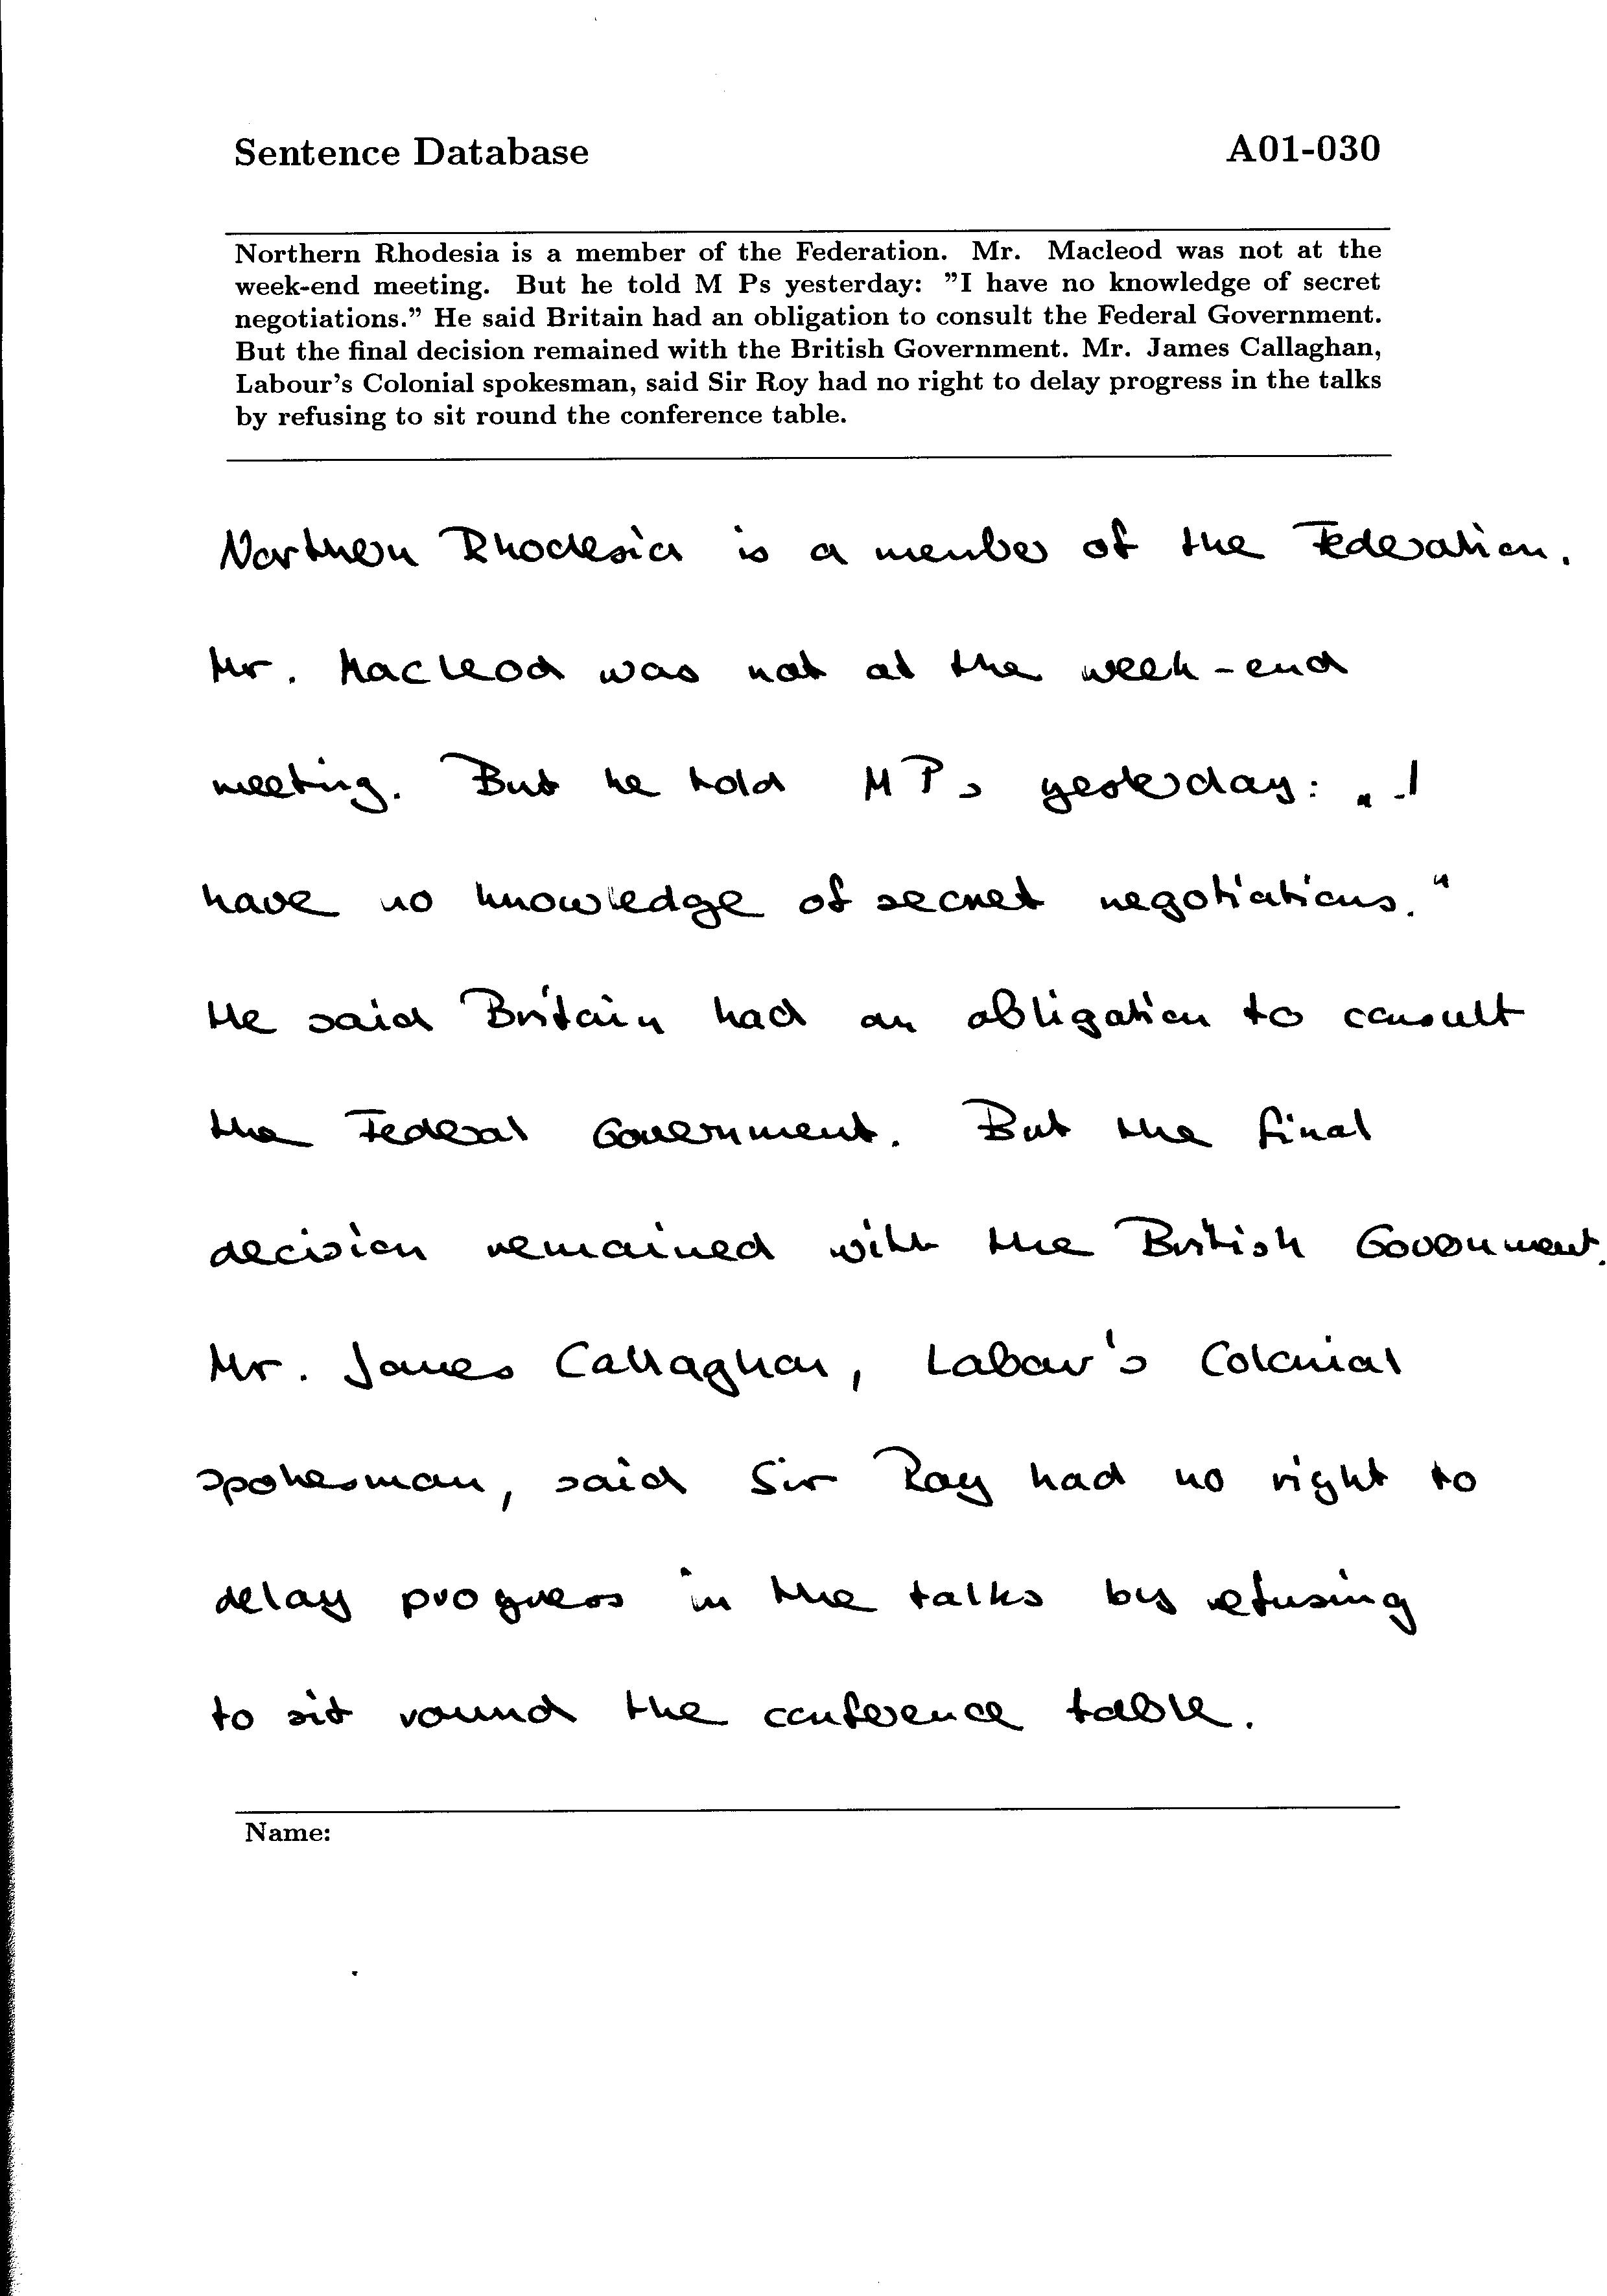 Sentence Database A01-030
Northern Rhodesia is a member of the Federation. Mr. Macleod was not at the
week-end meeting. But he told M Ps yesterday: "I have no knowledge of secret
negotiations." He said Britain had an obligation to consult the Federal Government.
But the final decision remained with the British Government. Mr. James Callaghan,
Labour's Colonial spokesman, said Sir Roy had no right to delay progress in the talks
by refusing to sit round the conference table.
Northern Rhodesia is a member of the Federation.
Mr. Macleod was not at the week-end
meeting. But he told M Ps yesterday: „I
have no knowledge of secret negotiations."
He said Britain had an obligation to consult
the Federal Government. But the final
decision remained with the British Government.
Mr. James Callaghan, Labour's Colonial
spokesman, said Sir Roy had no right to
delay progress in the talks by refusing
to sit round the conference table.
Name: